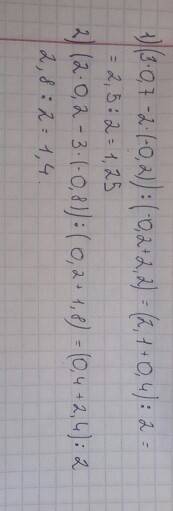 1) (3·0,7 - 2·(-0,2)) : (-0,2+2,2) = (2,1+0,4) : 2 =
= 2,5 : 2 = 1,25
2) (2·0,2 - 3·(-0,8)) : (0,2+1,8) = (0,4+2,4) : 2
2,8 : 2 = 1,4.